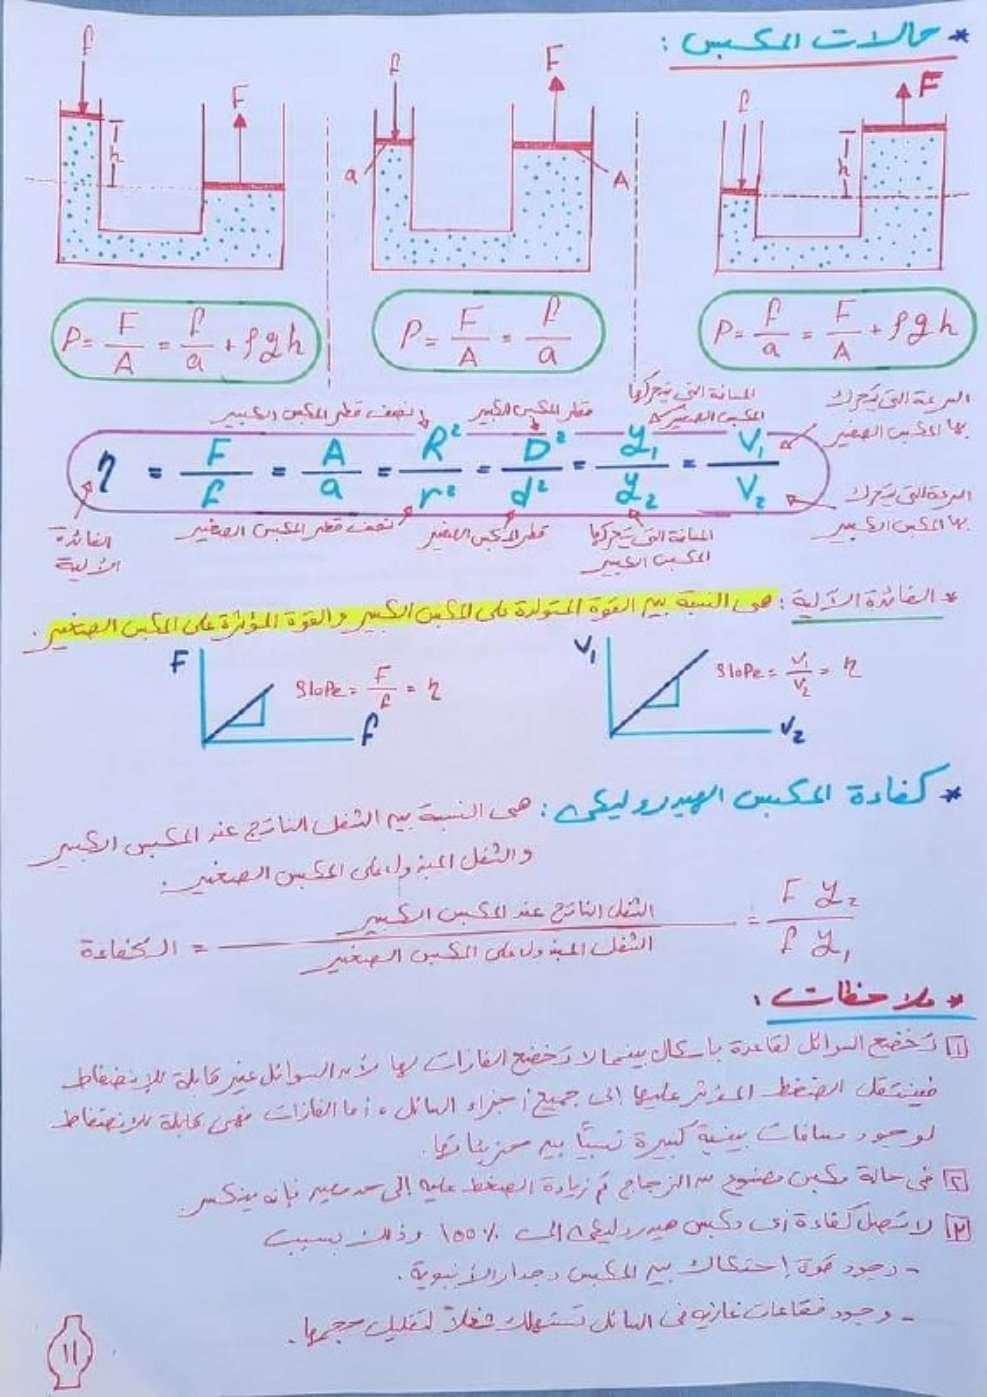 * حالات المكبس :
f
F
h
f
F
a
A
f
F
h
P = F/A = f/a + ρgh
P = F/A = f/a
P = f/a = F/A + ρgh
نصف قطر المكبس الكبير
قطر المكبس الكبير
المسافة التى يتحركها
المكبس الصغير
السرعة التى يتحرك
بها المكبس الصغير
η = F/f = A/a = R²/r² = D²/d² = y₁/y₂ = V₁/V₂
الفائدة
الآلية
نصف قطر المكبس الصغير
قطر المكبس الصغير
المسافة التى يتحركها
المكبس الكبير
السرعة التى يتحرك
بها المكبس الكبير
* الفائدة الآلية : هى النسبة بين القوة المتولدة على المكبس الكبير والقوة المؤثرة على المكبس الصغير .
F
Slope = F/f = η
f
V₁
Slope = V₁/V₂ = η
V₂
* كفاءة المكبس الهيدروليكى : هى النسبة بين الشغل الناتج عند المكبس الكبير
والشغل المبذول على المكبس الصغير .
الكفاءة = الشغل الناتج عند المكبس الكبير / الشغل المبذول على المكبس الصغير = F y₂ / f y₁
* ملاحظات :
١ تخضع السوائل لقاعدة باسكال بينما لا تخضع الغازات لها لأن السوائل غير قابلة للإنضغاط
فينتقل الضغط المؤثر عليها إلى جميع أجزاء السائل ، أما الغازات فهى قابلة للانضغاط
لوجود مسافات بينية كبيرة نسبيًا بين جزيئاتها .
٢ فى حالة مكبس مصنوع من الزجاج تم زيادة الضغط عليه إلى حد معين فإنه ينكسر .
٣ لا تصل كفاءة أى مكبس هيدروليكى إلى ١٠٠٪ وذلك بسبب
- وجود قوة إحتكاك بين المكبس وجدار الأنبوبة .
- وجود فقاعات غازية فى السائل تستهلك شغلاً لتقليل حجمها .
١١